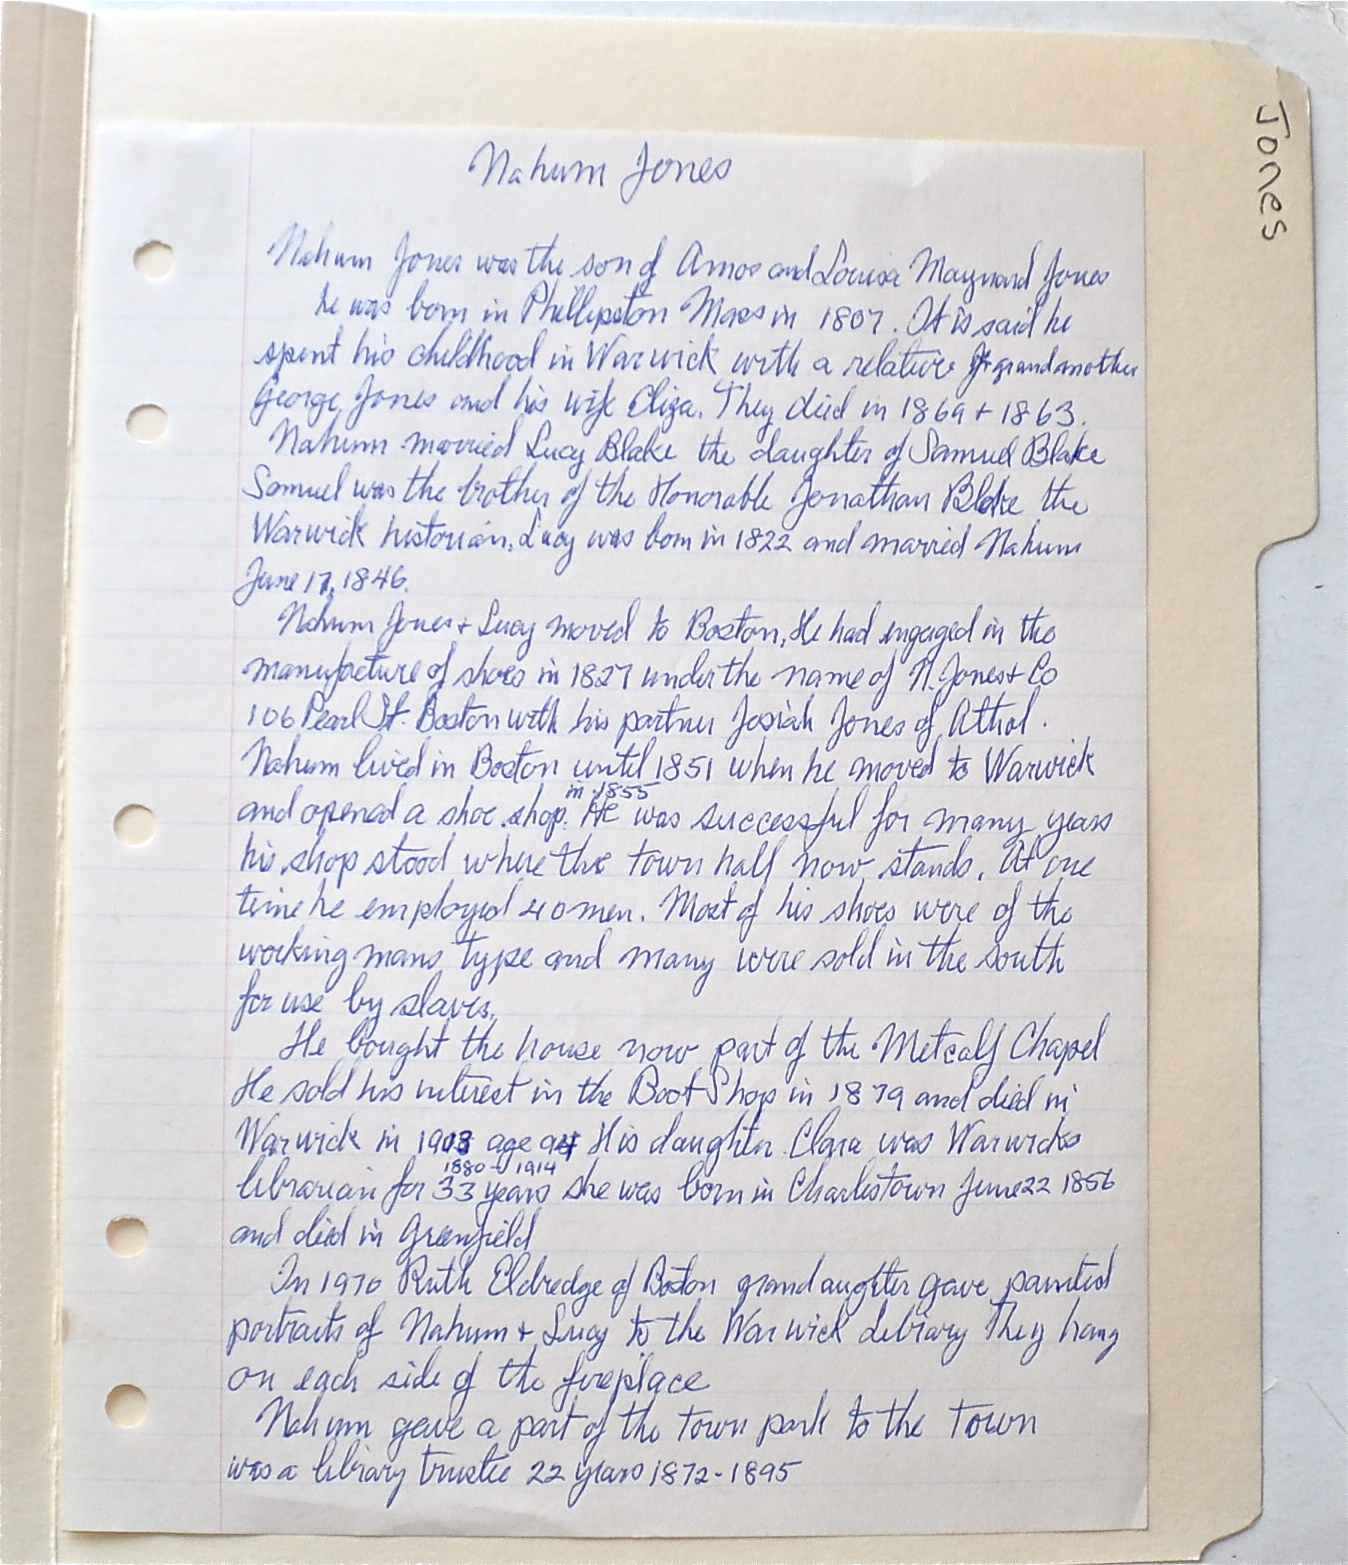 Jones
Nahum Jones
Nahum Jones was the son of Amos and Louisa Maynard Jones
he was born in Phillipston Mass in 1807. It is said he
spent his childhood in Warwick with a relative grandmother
George Jones and his wife Eliza. They died in 1869 + 1863.
Nahum married Lucy Blake the daughter of Samuel Blake
Samuel was the brother of the Honorable Jonathan Blake the
Warwick historian. Lucy was born in 1822 and married Nahum
June 17, 1846.
Nahum Jones + Lucy moved to Boston, He had engaged in the
manufacture of shoes in 1827 under the name of N. Jones + Co
106 Pearl St. Boston with his partner Josiah Jones of Athol.
Nahum lived in Boston until 1851 when he moved to Warwick
in 1855
and opened a shoe shop. He was successful for many years
his shop stood where the town hall now stands. At one
time he employed 40 men. Most of his shoes were of the
working mans type and many were sold in the South
for use by slaves.
He bought the house now part of the Metcalf Chapel
He sold his interest in the Boot Shop in 1879 and died in
Warwick in age His daughter Clara was Warwicks
1880 - 1914
librarian for 33 years she was born in Charlestown June 22 1856
and died in Greenfield
In 1970 Ruth Eldredge of Boston grandaughter gave painted
portraits of Nahum + Lucy to the Warwick Library They hang
on each side of the fireplace
Nahum gave a part of the town park to the town
was a library trustee 22 years 1872-1895